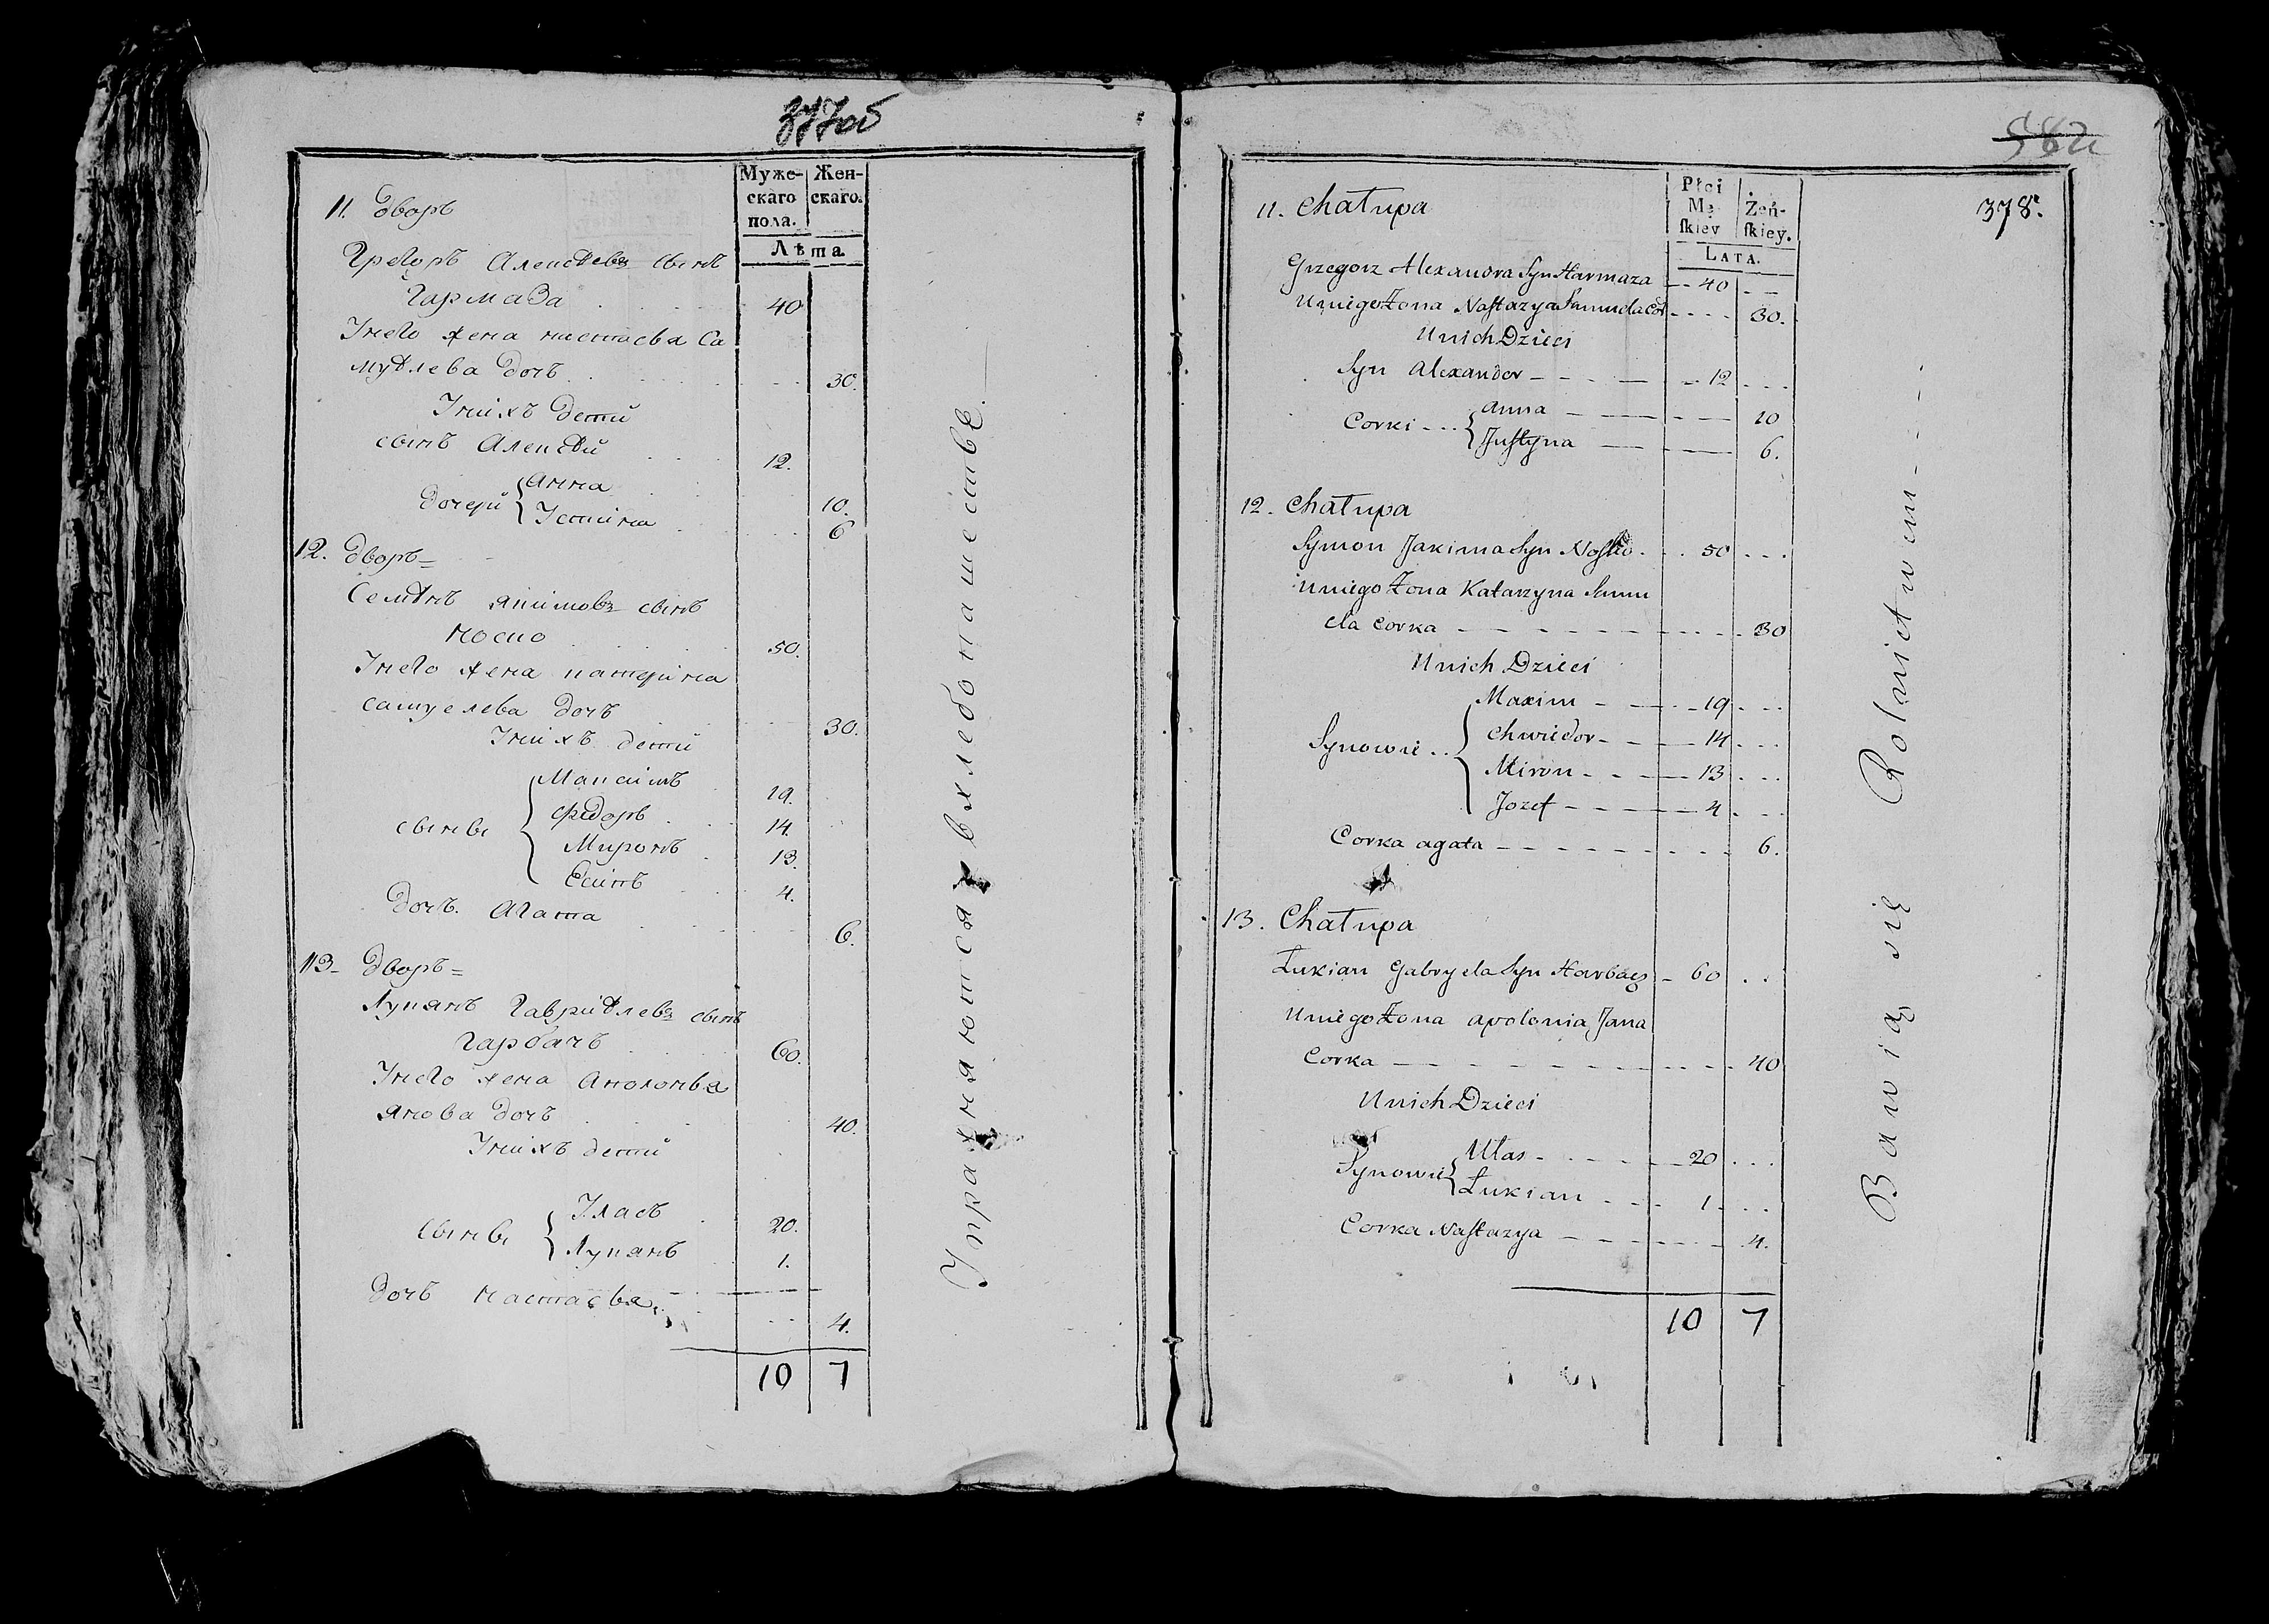 377об
Муже-
скаго
пола.
Жен-
скаго.
Лѣта
11. Дворъ
Грегоръ Алексѣевъ сынъ
Гармаза 40
Унего жена настасья Са
муѣлева дочь 30.
Унихъ дети
сынъ Алексѣй 12.
дочери { Анна 10.
Устина 6
12. Дворъ =
Семѣнъ якимовъ сынъ
носко 50.
Унего жена катерина
самуелева дочь 30.
Унихъ дети
сыновья { Максимъ 19.
Федоръ 14.
Миронъ 13.
Есипъ 4.
Дочь Агата 6.
13 - Дворъ =
Лукянъ Гавриѣлевъ сынъ
Гарбачъ 60.
Унего жена Аполонья
янова дочь 40.
Унихъ дети
Сынове { Уласъ 20.
Лукянъ 1.
Дочь настасья 4.
10 7
Упражняются в хлебопашествѣ.
582
378.
Płci
Mę-
ſkiey
Żeń-
ſkiey.
LATA.
11. Chałupa
Grzegorz Alexandra Syn Harmaza -- 40 --
Uniego Żona Naſtazya Samuela Cor ---- 30.
Unich Dzieci
Syn Alexander ---- 12 ---
Corki --- { Anna ---- 10
Juſtyna ---- 6.
12. Chałupa
Symon Jakima Syn Noſko -- 50 ---
Uniego Żona Katarzyna Samu
ela Corka ------ 30
Unich Dzieci
Synowie .. { Maxim ---- 19 ---
Chwiedor ---- 14 ---
Miron ---- 13 ---
Jozef ---- 4 ---
Corka agata ------ 6.
13. Chałupa
Łukian Gabryela Syn Harbacz - 60 ..
Uniego Żona apolonia Jana
Corka ------ 40
Unich Dzieci
Synowie { Ułas ---- 20 ---
Łukian --- 1 ---
Corka Naſtazya ---- 4.
10 7
Bawią się Rolnictwem ---